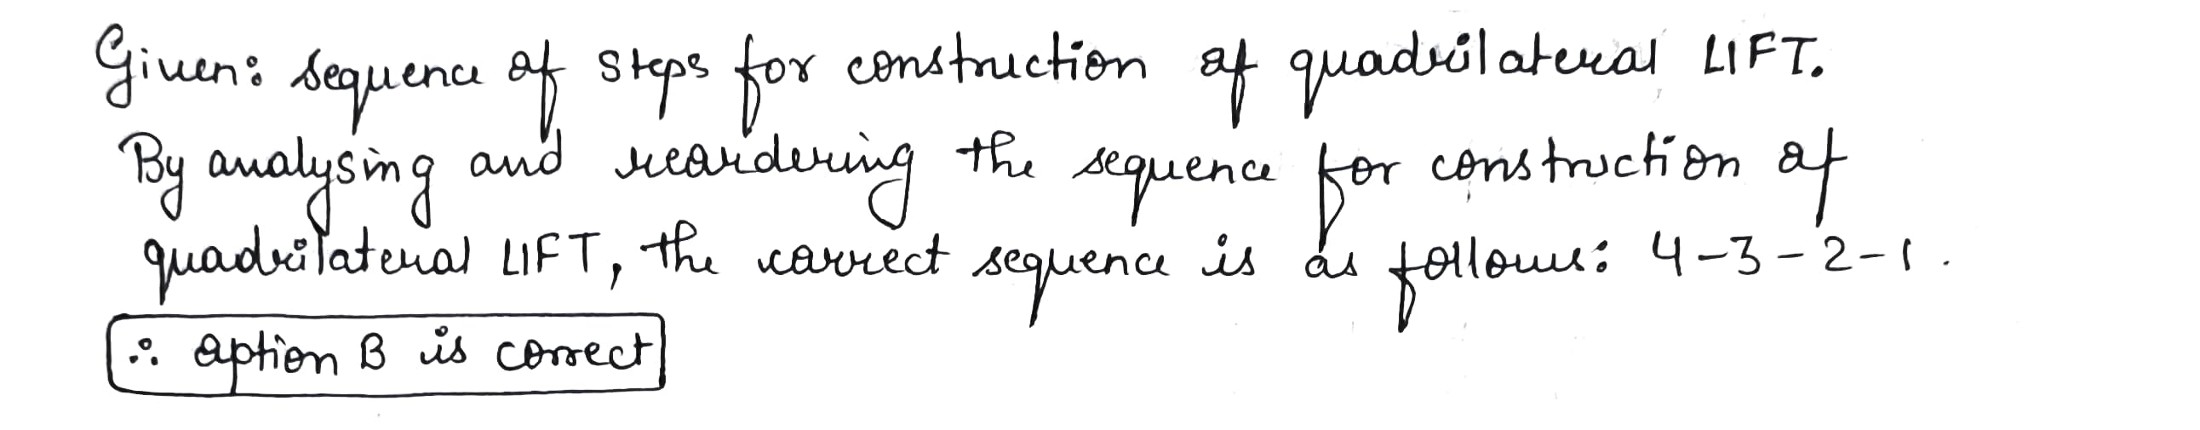 Given: sequence of steps for construction of quadrilateral LIFT.
By analysing and reordering the sequence for construction of
quadrilateral LIFT, the correct sequence is as follows: 4-3-2-1.
∴ option B is correct